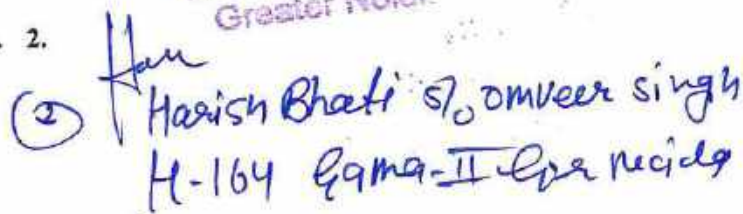 Greater Noida
2.
Har
(2) Harish Bhati S/o omveer singh
H-164 Gama-II Gr. Noida